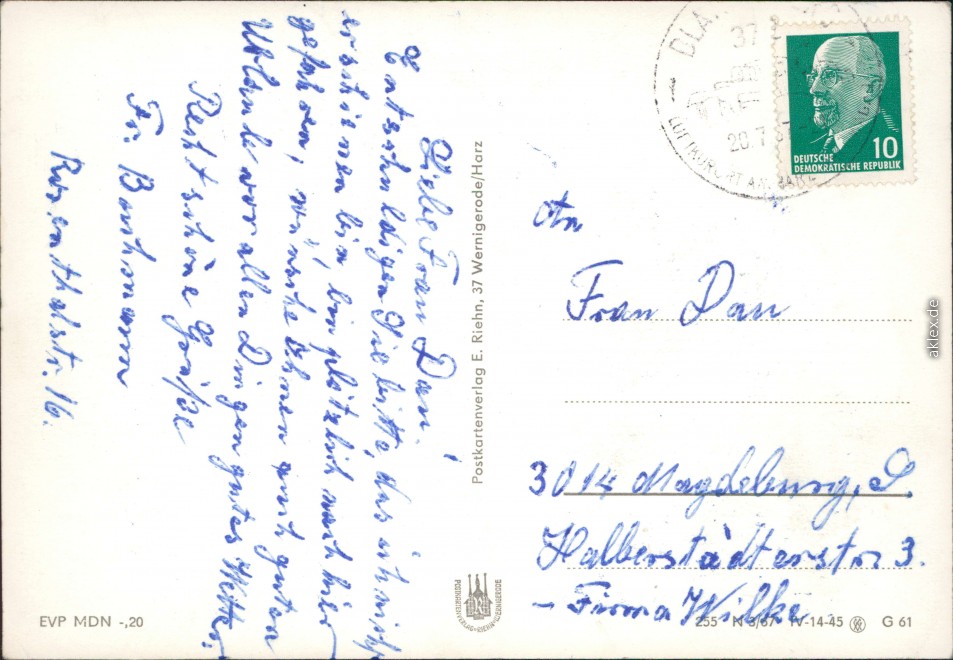 Liebe Frau Dau!
Entschuldigen Sie bitte, das ich nicht
erschienen bin, bin plötzlich nach hier
gefahren, wünsche Ihnen auch guten
Urlaub vor allen Dingen gutes Wetter.
Recht schöne Grüße
Fr. Buchmann
Rosenthalstr. 16.
Postkartenverlag E. Riehn, 37 Wernigerode/Harz
POSTKARTENVERLAG E. RIEHN WERNIGERODE
EVP MDN -,20
37
20.7.
LUFTKURORT AM HARZ
10
DEUTSCHE
DEMOKRATISCHE REPUBLIK
An
Frau Dau
3014 Magdeburg, S.
Halberstädterstr 3.
- Firma Wilke
255 N 3/67 IV-14-45 G 61
aklex.de